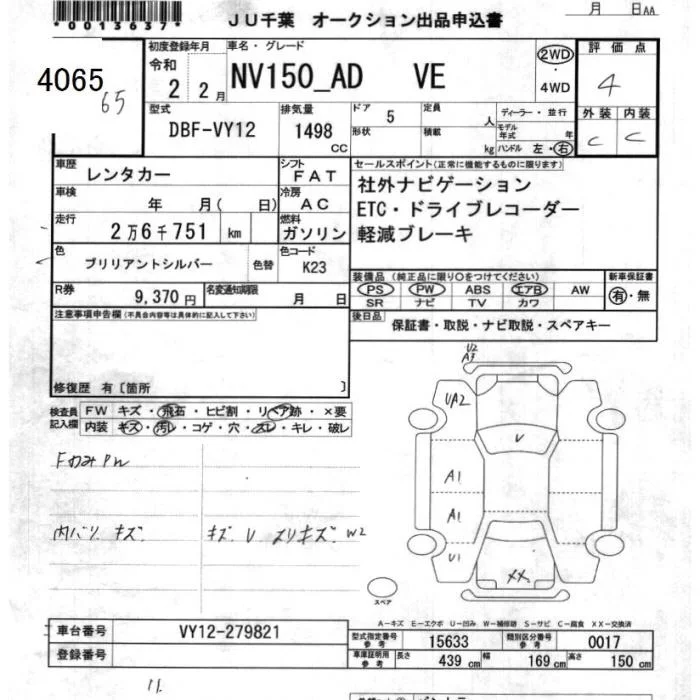 *0013637*
JU千葉 オークション出品申込書
月 日AA
4065
65
初度登録年月
令和
2 2月
車名・グレード
NV150_AD VE
2WD
・
4WD
評価点
4
外装 内装
C C
型式
DBF-VY12
排気量
1498
CC
ドア
5
形状
定員
人
積載
kg
ディーラー・並行
モデル年式 年
ハンドル 左・右
車歴
レンタカー
シフト
FAT
車検
年 月( 日)
冷房
AC
走行
2万6千751 km
燃料
ガソリン
色
ブリリアントシルバー
色替
色コード
K23
R券
9,370円
名変通知期限
月 日
セールスポイント(正常に機能するものに限ります)
社外ナビゲーション
ETC・ドライブレコーダー
軽減ブレーキ
装備品 (純正品に限り○をつけてください)
PS PW ABS エアB AW
SR ナビ TV カワ
新車保証書
有・無
後日品
保証書・取説・ナビ取説・スペアキー
注意事項申告欄(不具合内容等は具体的に記入して下さい)
修復歴 有〔箇所 〕
検査員
記入欄
FW キズ・飛石・ヒビ割・リペア跡・×要
内装 キズ・汚レ・コゲ・穴・スレ・キレ・破レ
FのみPW
内バリ キズ
キズ U スリキズ W2
U2
A3
UA2
V
A1
A1
U1
XX
スペア
A-キズ E-エクボ U-凹み W-補修跡 S-サビ C-腐食 XX-交換済
車台番号
VY12-279821
登録番号
型式指定番号
参考
15633
類別区分番号
参考
0017
車庫証明用
参考
長さ
439 cm
幅
169 cm
高さ
150 cm